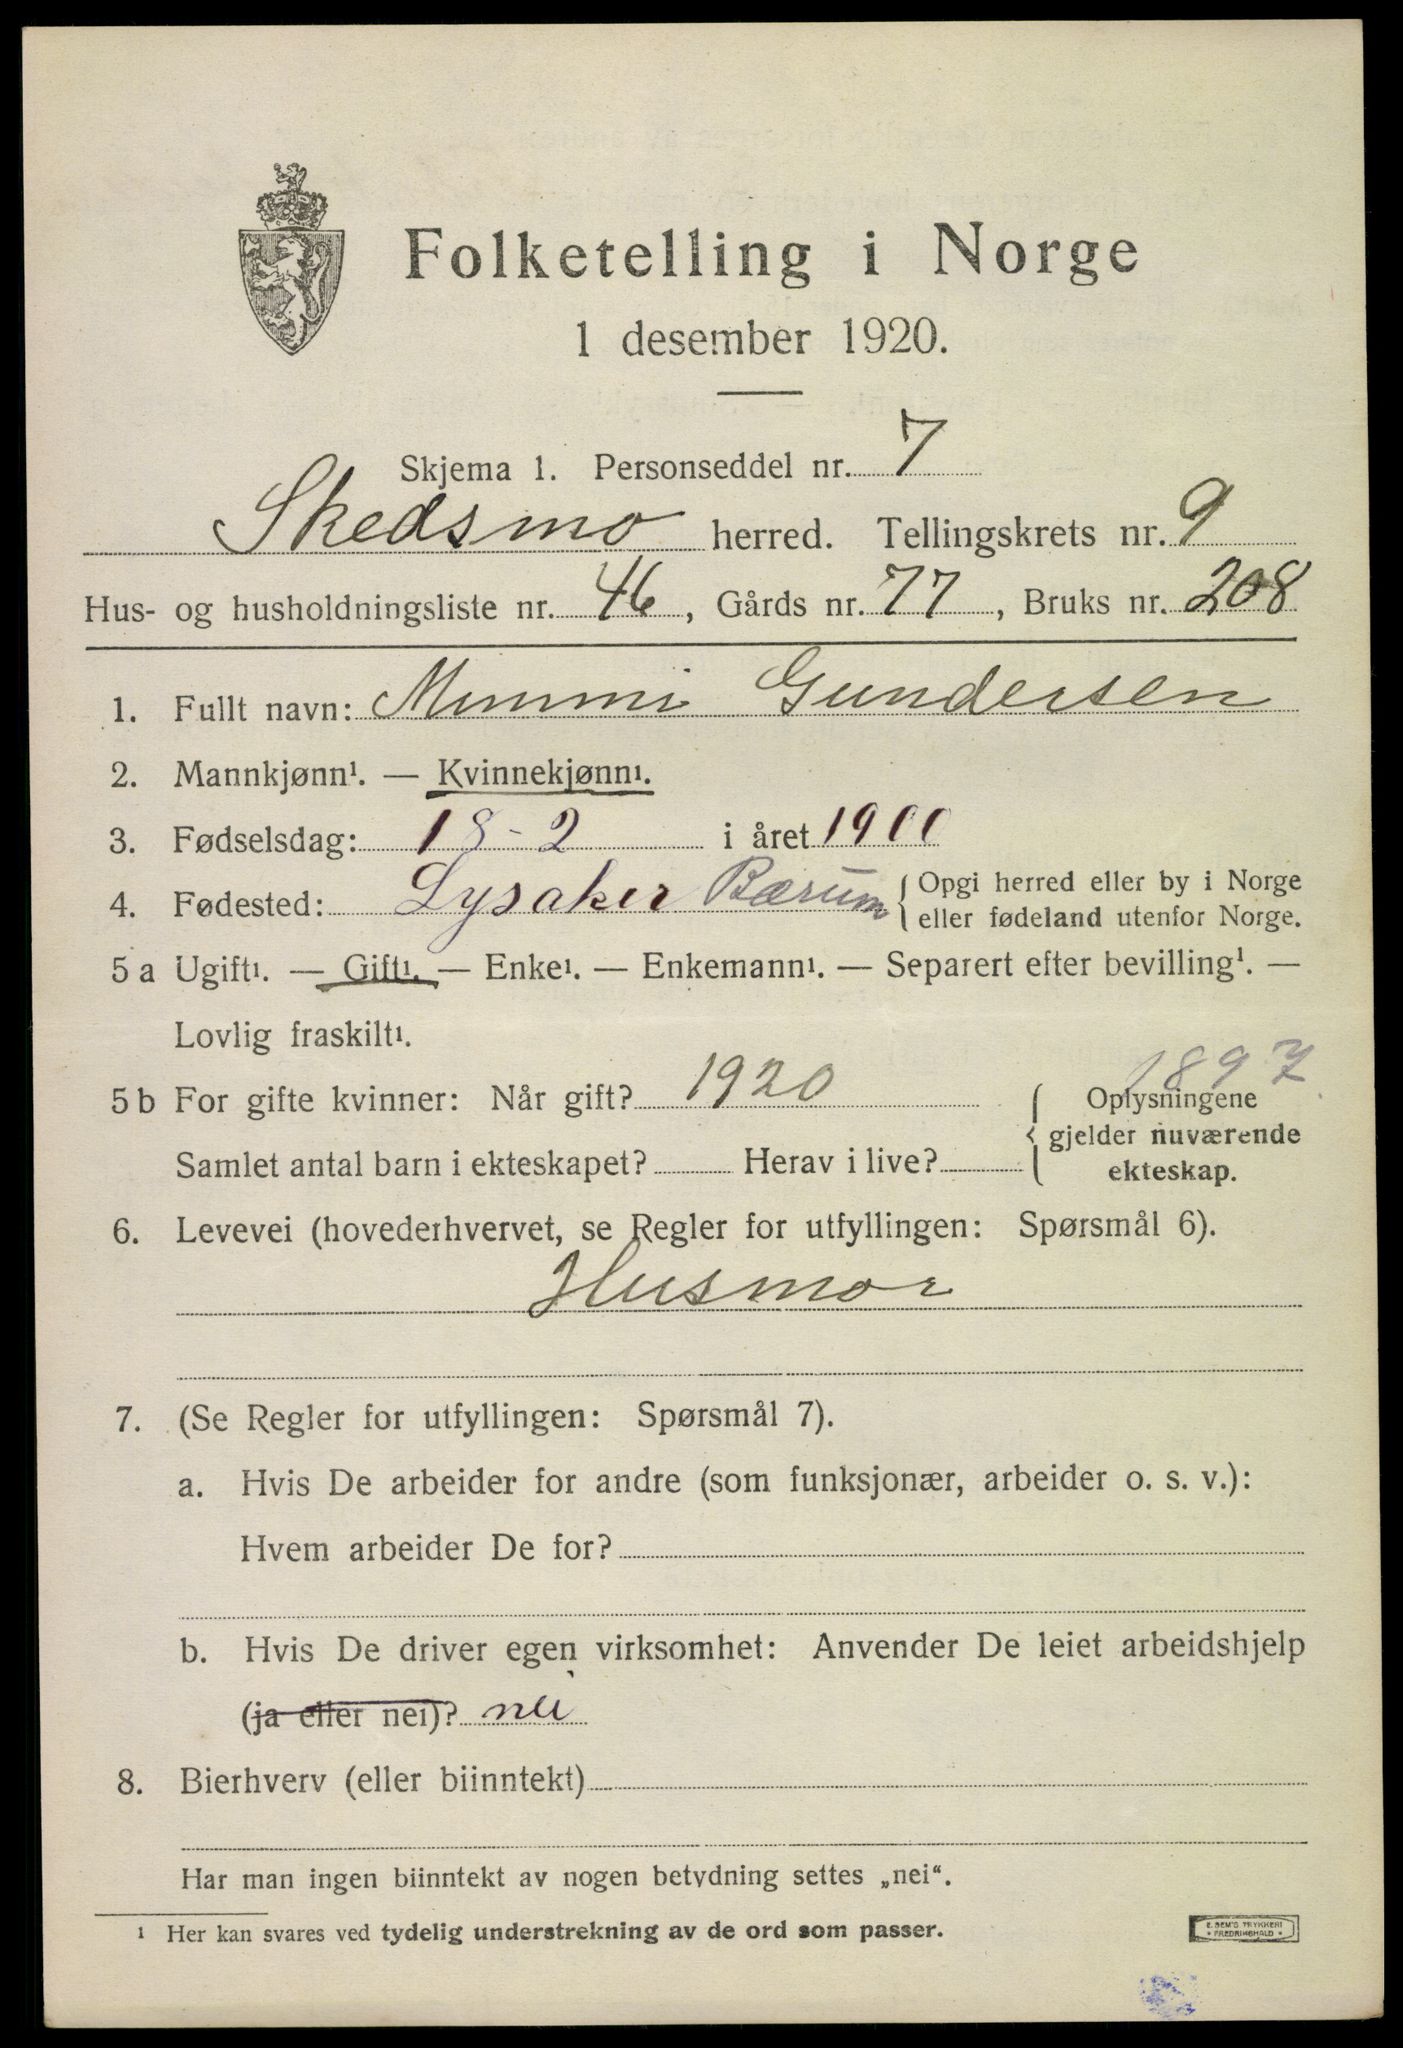 Folketelling i Norge
1 desember 1920.
Skjema 1. Personseddel nr. 7
Skedsmo herred. Tellingskrets nr. 9
Hus- og husholdningsliste nr. 46, Gårds nr. 77, Bruks nr. 208
1. Fullt navn: Mimmi Gundersen
2. Mannkjønn¹. — Kvinnekjønn¹.
3. Fødselsdag: 18-2 i året 1900
4. Fødested: Lysaker Bærum { Opgi herred eller by i Norge
eller fødeland utenfor Norge.
5 a Ugift¹. — Gift¹. — Enke¹. — Enkemann¹. — Separert efter bevilling¹. —
Lovlig fraskilt¹.
1897
5 b For gifte kvinner: Når gift? 1920 { Oplysningene
gjelder nuværende
Samlet antal barn i ekteskapet? Herav i live? ekteskap.
6. Levevei (hovederhvervet, se Regler for utfyllingen: Spørsmål 6).
Husmor
7. (Se Regler for utfyllingen: Spørsmål 7).
a. Hvis De arbeider for andre (som funksjonær, arbeider o. s. v.):
Hvem arbeider De for?
b. Hvis De driver egen virksomhet: Anvender De leiet arbeidshjelp
(ja eller nei)? nei
8. Bierhverv (eller biinntekt)
Har man ingen biinntekt av nogen betydning settes „nei“.
¹ Her kan svares ved tydelig understrekning av de ord som passer.
E. SEM'S TRYKKERI
* FREDRIKSHALD *